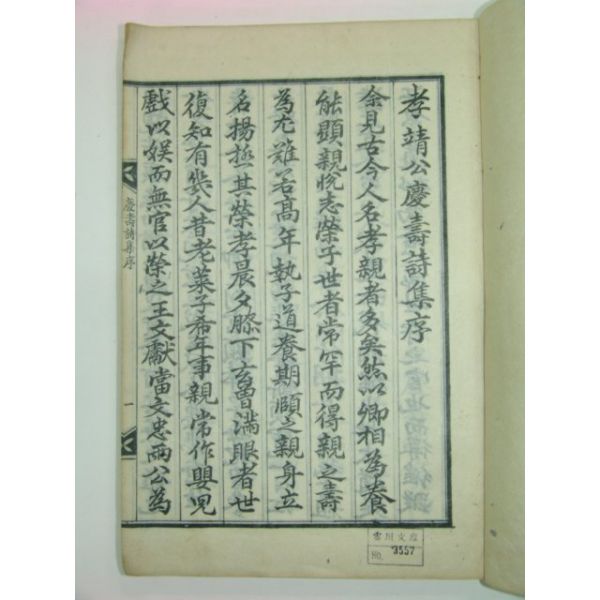 孝靖公慶壽詩集序
余見古今人名孝親者多矣然以卿相為養
能顯親悅志榮于世者常罕而得親之壽
為尤難若高年執子道養期頤之親身立
名揚極其榮孝晨夕膝下玄曾滿眼者世
復知有幾人昔老菜子希年事親常作嬰児
戲以娛而無官以榮之王文獻當文忠兩公為
慶壽詩集序
一
雪川文庫
No. 3557